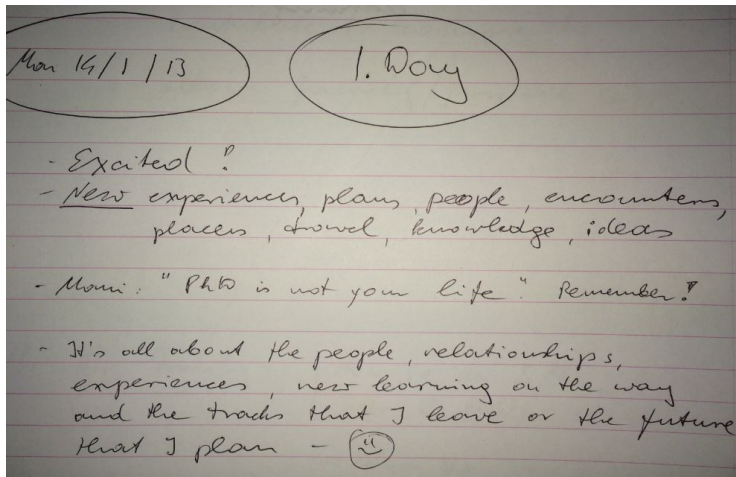 Mon 14/1/13
1. Day
- Excited!
- New experiences, plans, people, encounters,
places, travel, knowledge, ideas
- Momi: "PhD is not your life". Remember!
- It's all about the people, relationships,
experiences, new learning on the way
and the tracks that I leave or the future
that I plan -